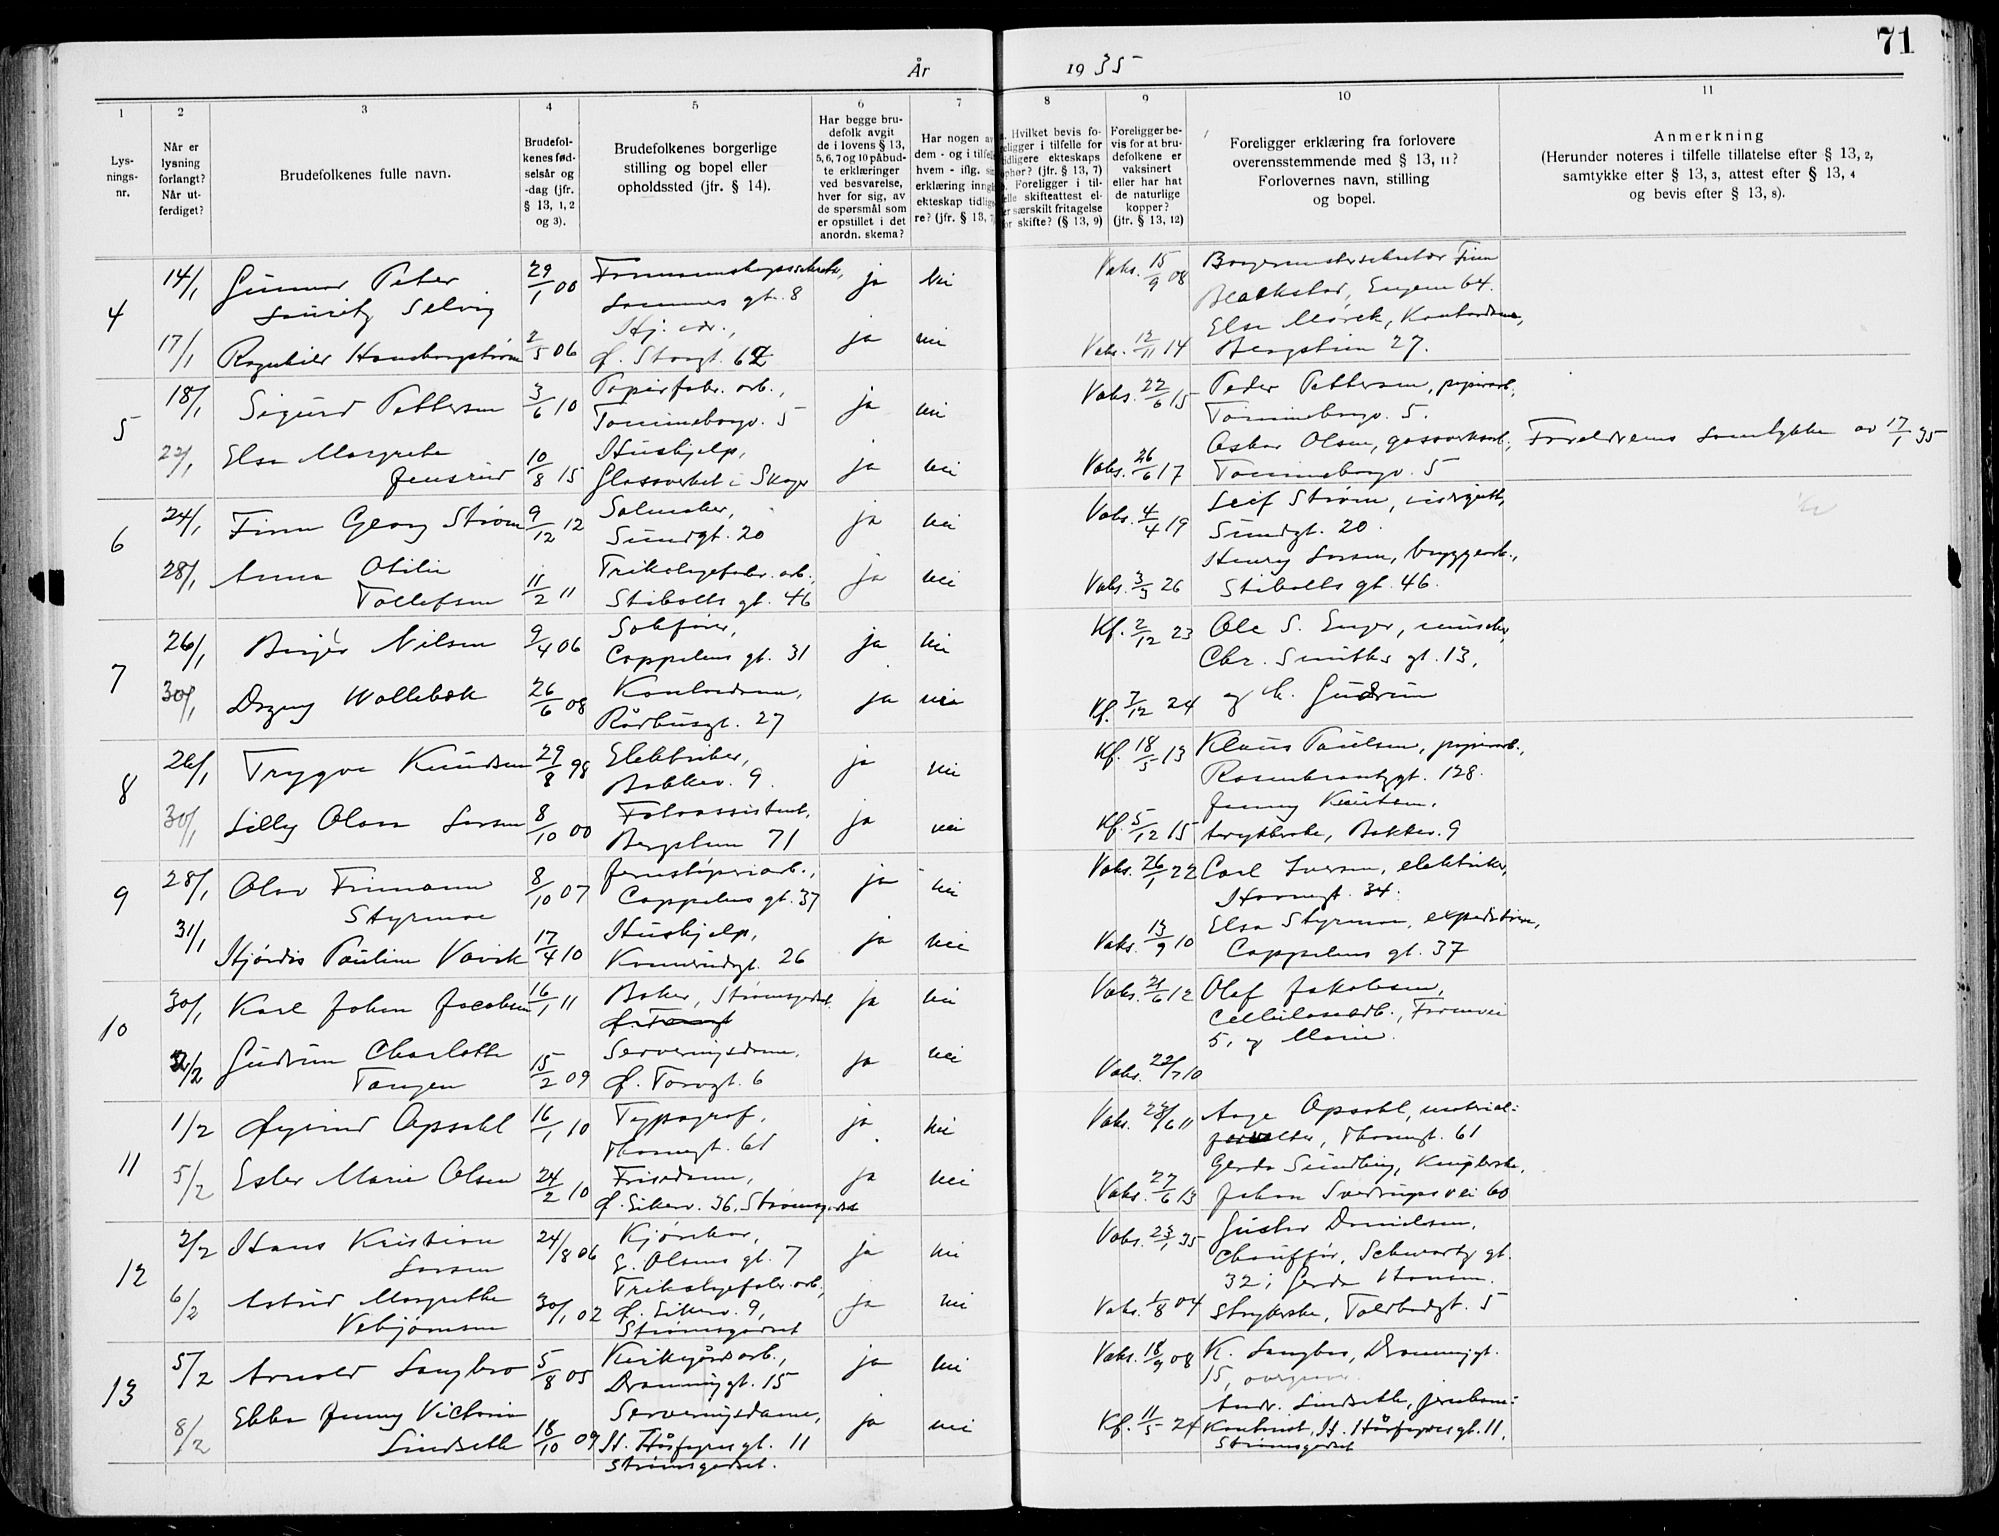 71
År 1935
1 2 3 4 5 6 7 8 9 10 11
Lysningsnr.
Når er lysning forlangt? Når utferdiget?
Brudefolkenes fulle navn.
Brudefolkenes fødselsår og -dag (jfr. § 13, 1, 2 og 3).
Brudefolkenes borgerlige stilling og bopel eller opholdssted (jfr. § 14).
Har begge brudefolk avgit de i lovens § 13, 5, 6, 7 og 10 påbudte erklæringer ved besvarelse, hver for sig, av de spørsmål som er opstillet i det anordn. skema?
Har nogen av dem - og i tilfelle hvem - iflg. erklæring inngått ekteskap tidligere? (jfr. § 13, 7
Hvilket bevis foreligger i tilfelle for tidligere ekteskaps ophør? (jfr. § 13, 7) Foreligger i tilfelle skifteattest eller særskilt fritagelse for skifte? (§ 13, 9)
Foreligger bevis for at brudefolkene er vaksinert eller har hat de naturlige kopper? (jfr. § 13, 12)
Foreligger erklæring fra forlovere overensstemmende med § 13, 11? Forlovernes navn, stilling og bopel.
Anmerkning (Herunder noteres i tilfelle tillatelse efter § 13, 2, samtykke efter § 13, 3, attest efter § 13, 4 og bevis efter § 13, 8).
4 14/1 Gunnar Peter 29/1 00 ja Nei Vaks. 15/9 08 Finn
Lauritz Selvig gt. 8 Engene 64.
17/1 Ragnhild 2/5 06 Hj. vær., ja nei Vaks. 12/11 14 Else Mørck, Kontordame,
Ø. Storgt. 62 Bergstien 27.
5 18/1 Sigurd Pettersen 3/6 10 Papirfabr. arb., ja nei Vaks. 22/6 15 Peder Pettersen, papirarb.,
Tomineborgv. 5 Tomineborgv. 5.
22/1 Elsa Margrethe 10/8 15 Hushjelp, ja nei Vaks. 26/6 17 Oskar Olsen, Foreldrenes samtykke av 17/1 35
Jensrud Glassverket i Skoger Tomineborgv. 5
6 24/1 Finn Georg Strøm 9/12 12 Salmaker, ja nei Vaks. 4/4 19 Leif Strøm,
Sundgt. 20 Sundgt. 20.
28/1 Anna Otilie 11/2 11 Trikotagefabr. arb., ja nei Vaks. 3/3 26 Henry Larsen, bryggearb.,
Tollefsen Stibolts gt. 46 Stibolts gt. 46.
7 26/1 Birger Nilsen 9/4 06 ja nei Kf. 2/12 23 Ole S. Enger, musiker,
Cappelens gt. 31 Chr. Smiths gt. 13,
30/1 Dagny Wollebæk 26/6 08 Kontordame, ja nei Kf. 7/12 24 og h. Gudrun
Rådhusgt. 27
8 26/1 Trygve Knudsen 29/8 98 Elektriker, ja nei Kf. 18/5 13 Klaus Paulsen, papirarb.,
Bakkev. 9. Rosenkrantzgt. 128.
30/1 Lilly Olava Larsen 8/10 00 Fotoassistent, ja nei Kf. 5/12 15 Jenny Knutsen,
Bergstien 71 strykerske, Bakkev. 9
9 28/1 Olav Finmann 8/10 07 Jernstøperiarb., ja nei Vaks. 26/1 22 Carl Iversen, elektriker,
Styrmoe Cappelens gt. 37 Havnegt. 34.
31/1 Hjørdis Pauline Vavik 17/4 10 Hushjelp, ja nei Vaks. 13/9 10 Elsa Styrmoe, expeditrise,
26 Cappelens gt. 37
10 30/1 Karl Johan Jacobsen 16/1 11 Baker, Strømsgodset ja nei Vaks. 21/6 12 Olaf Jakobsen,
Cellulosearb., 
5, og Marie.
2/2 Gudrun Charlotte 15/2 09 Serveringsdame, ja nei Vaks. 22/7 10
Tangen Ø. Torvgt. 6
11 1/2 Øyvind Opsahl 16/1 10 Typograf, ja nei Vaks. 28/6 11 Aage Opsahl, material-
Thornegt. 61 forvalter, Thornegt. 61
5/2 Ester Marie Olsen 24/2 10 Frisødame, ja nei Vaks. 27/6 13 Gerda Sundling,
Ø. Eikerv. 36, Strømsgodset Johan Sverdrups vei 60
12 2/2 Hans Kristian 24/8 06 Kjørekar, ja nei Vaks. 23/1 35 Gustav Danielsen,
Larsen G. Olsens gt. 7 Chauffør, Schwartz gt.
32; Gerda Hansen.
6/2 Astrid Margrethe 30/1 02 Trikotagefabr. arb., ja nei Vaks. 1/8 04 Strykerske, Toldbodgt. 5
Vebjørnsen Ø. Eikerv. 9,
Strømsgodset
13 5/2 Arnold Langbro 5/8 05 Kirkegårdsarb., ja nei Vaks. 18/9 08 K. Langbro, Dronninggt.
Dronninggt. 15 15,
8/2 Ebba Jenny Victoria 18/10 09 Serveringsdame, ja nei Kf. 11/5 24 Andr. Lindseth, jernbane-
Lindseth H. Hårfagres gt. 11 H. Hårfagres gt. 11,
Strømsgodset. Strømsgodset